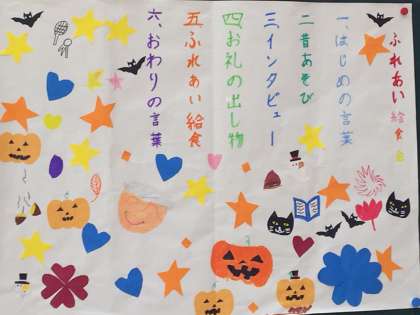 ふれあい給食会
一、はじめの言葉
二、昔あそび
三、インタビュー
四、お礼の出し物
五、ふれあい給食
六、おわりの言葉